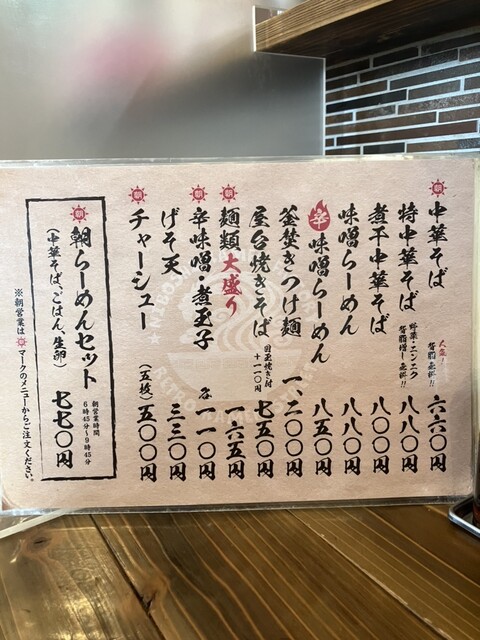 朝 中華そば 背脂無料!! 六六〇円
特中華そば 野菜・ニンニク 背脂増し無料!! 八八〇円
煮干中華そば 八〇〇円
味噌らーめん 八八〇円
辛 味噌らーめん 八五〇円
釜焚きつけ麺 一、二〇〇円
屋台焼きそば 目玉焼き付 +一一〇円 七五〇円
朝 麺類大盛り 一六五円
朝 辛味噌・煮玉子 各一一〇円
げそ天 三三〇円
朝 チャーシュー (五枚) 五〇〇円
朝 朝らーめんセット 朝営業時間 6時45分〜9時45分
(中華そば、ごはん、生卵) 七七〇円
※朝営業は朝マークのメニューからご注文ください。